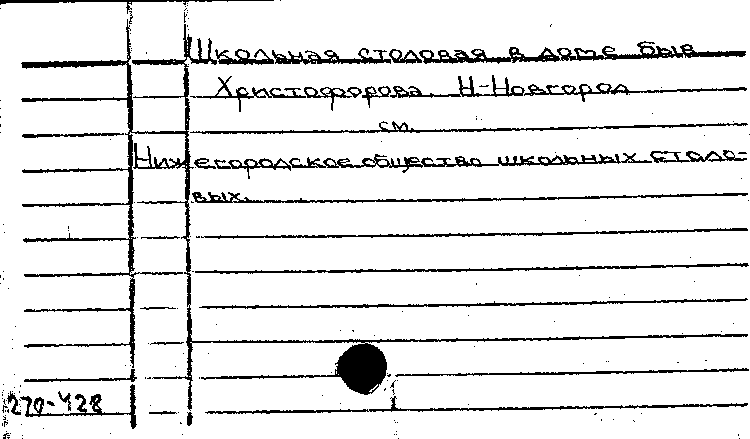 Школьная столовая в доме быв
Христофорова. Н-Новгород
см.
Нижегородское общество школьных столо-
вых.
270-428